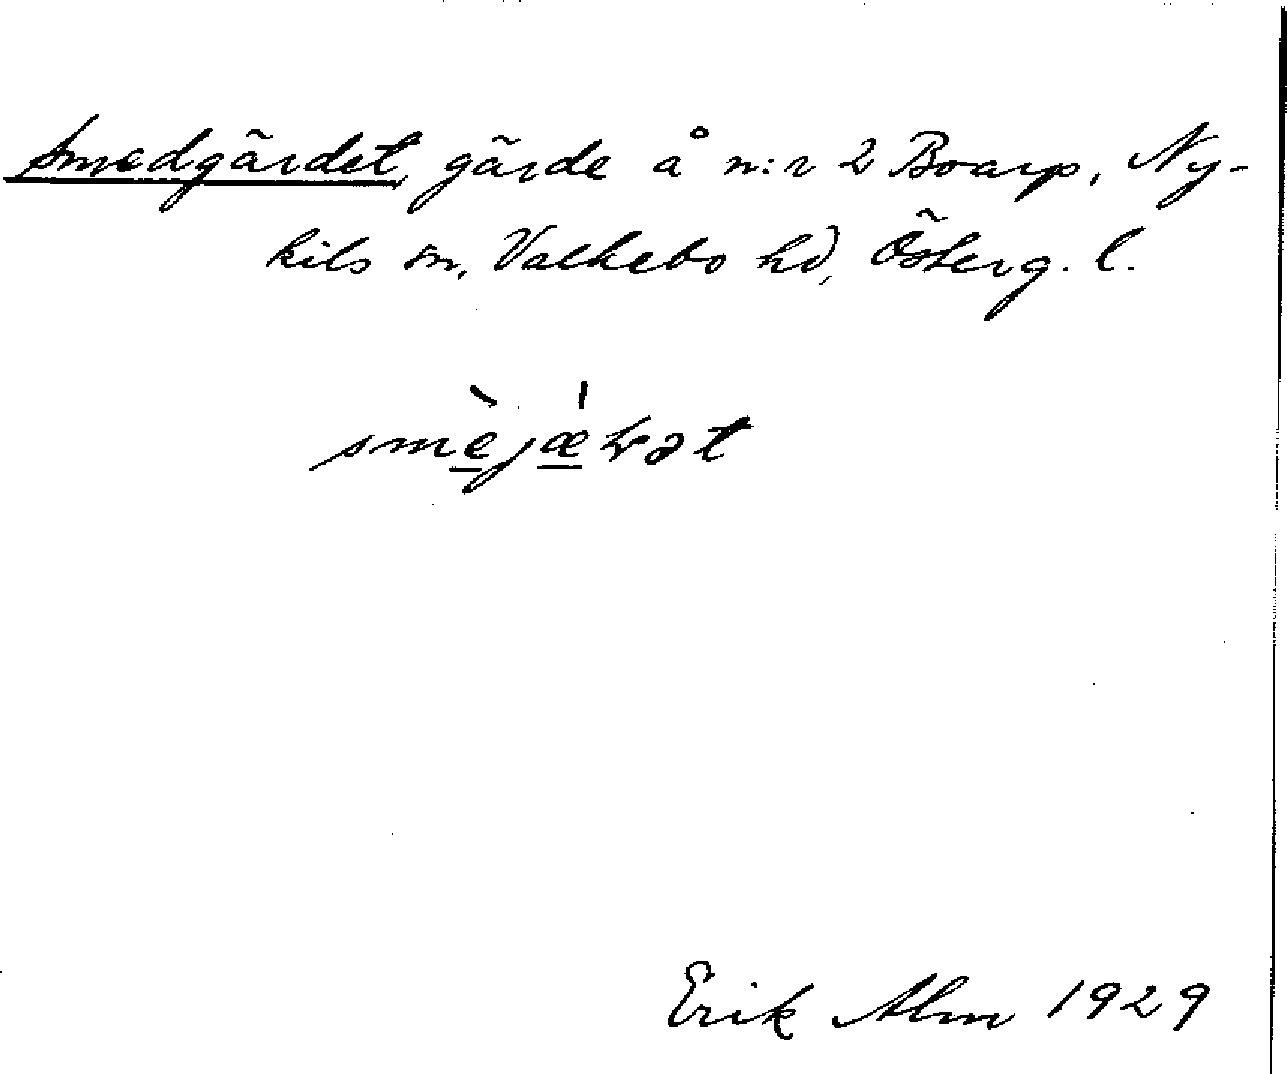 Smedgärdet, gärde å n:r 2 Boarp, Ny-
kils sn, Valkebo hd, Österg. l.
Erik Alm 1929